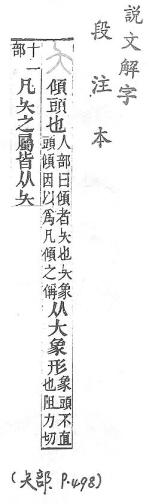 說文解字
段注本
夨
傾頭也人部曰傾者夨也夨象頭傾因以爲凡傾之偁从大象形象頭不直也阻力切
凡夨之屬皆从夨
十一部
(夨部. P.498)